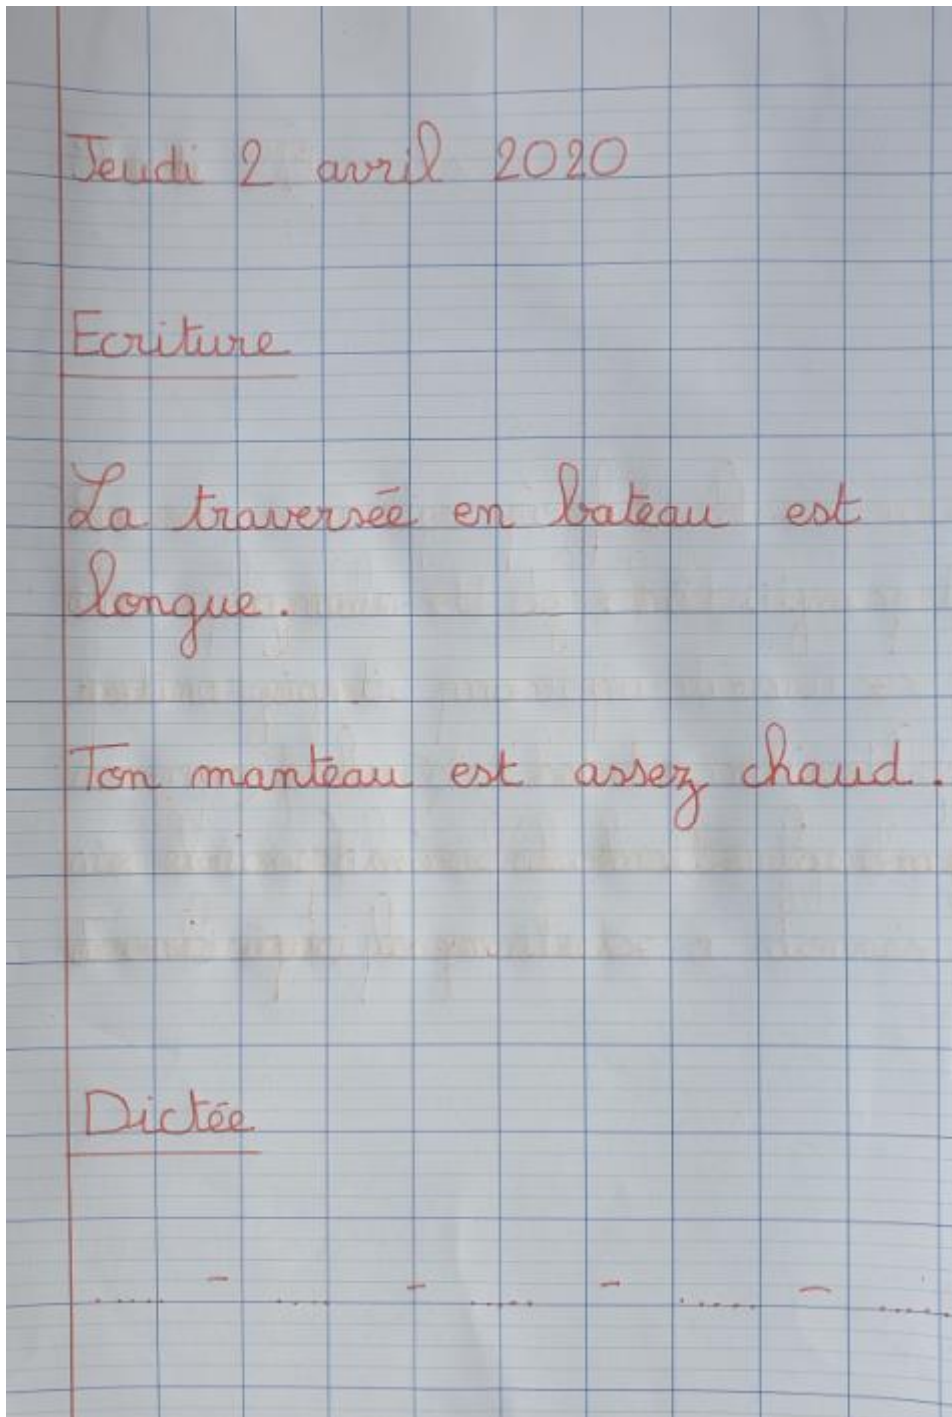 Jeudi 2 avril 2020
Ecriture
La traversée en bateau est
longue.
Ton manteau est assez chaud.
Dictée
..... - ..... - ..... - ..... - .....